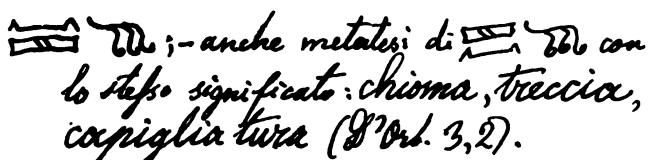 ;- anche metatesi di con
lo stesso significato: chioma, treccia,
capigliatura (D'Orb. 3,2).